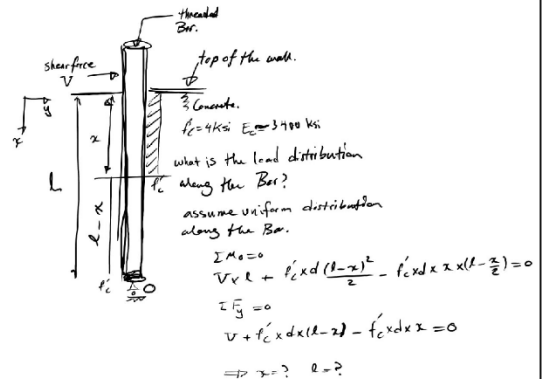 threaded
Bar.
top of the wall.
shear force
V
y
x
x
L
l - x
f'c
f'c
O
Concrete.
f'c = 4 ksi Ec = 3400 ksi
what is the load distribution
along the Bar?
assume uniform distribution
along the Bar.
ΣMo = 0
V × l + f'c × d (l-x)²/2 - f'c × d × x × (l - x/2) = 0
ΣFy = 0
V + f'c × d × (l-x) - f'c × d × x = 0
⇒ x = ? l = ?